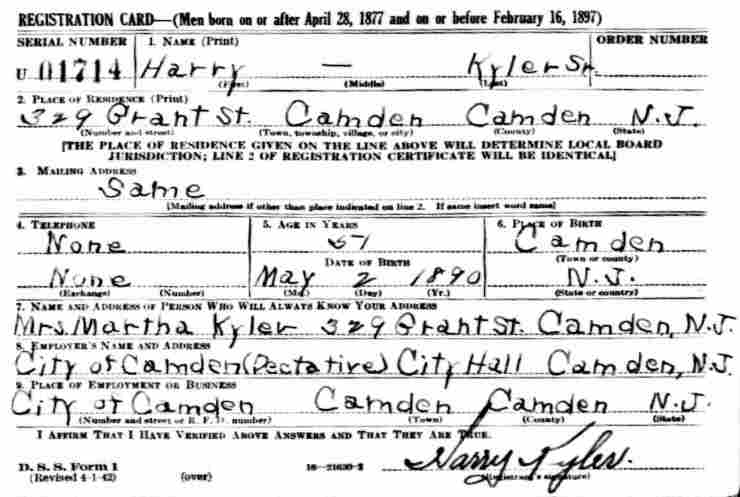 REGISTRATION CARD—(Men born on or after April 28, 1877 and on or before February 16, 1897)
SERIAL NUMBER 1. NAME (Print) ORDER NUMBER
U 01714 Harry — Kyler Sr.
(First) (Middle) (Last)
2. PLACE OF RESIDENCE (Print)
329 Grant St. Camden Camden N.J.
(Number and street) (Town, township, village, or city) (County) (State)
[THE PLACE OF RESIDENCE GIVEN ON THE LINE ABOVE WILL DETERMINE LOCAL BOARD
JURISDICTION; LINE 2 OF REGISTRATION CERTIFICATE WILL BE IDENTICAL]
3. MAILING ADDRESS
Same
[Mailing address if other than place indicated on line 2. If same insert word same]
4. TELEPHONE 5. AGE IN YEARS 6. PLACE OF BIRTH
None Camden
DATE OF BIRTH (Town or county)
None May 2 1890 N.J.
(Exchange) (Number) (Mo.) (Day) (Yr.) (State or country)
7. NAME AND ADDRESS OF PERSON WHO WILL ALWAYS KNOW YOUR ADDRESS
Mrs. Martha Kyler 329 Grant St. Camden, N.J.
8. EMPLOYER'S NAME AND ADDRESS
City of Camden (Dectative) City Hall Camden, N.J.
9. PLACE OF EMPLOYMENT OR BUSINESS
City of Camden Camden Camden N.J.
(Number and street or R. F. D. number) (Town) (County) (State)
I AFFIRM THAT I HAVE VERIFIED ABOVE ANSWERS AND THAT THEY ARE TRUE.
D. S. S. Form 1
(Revised 4-1-42) (over) 16—21630-2 Harry Kyler.
(Registrant's signature)